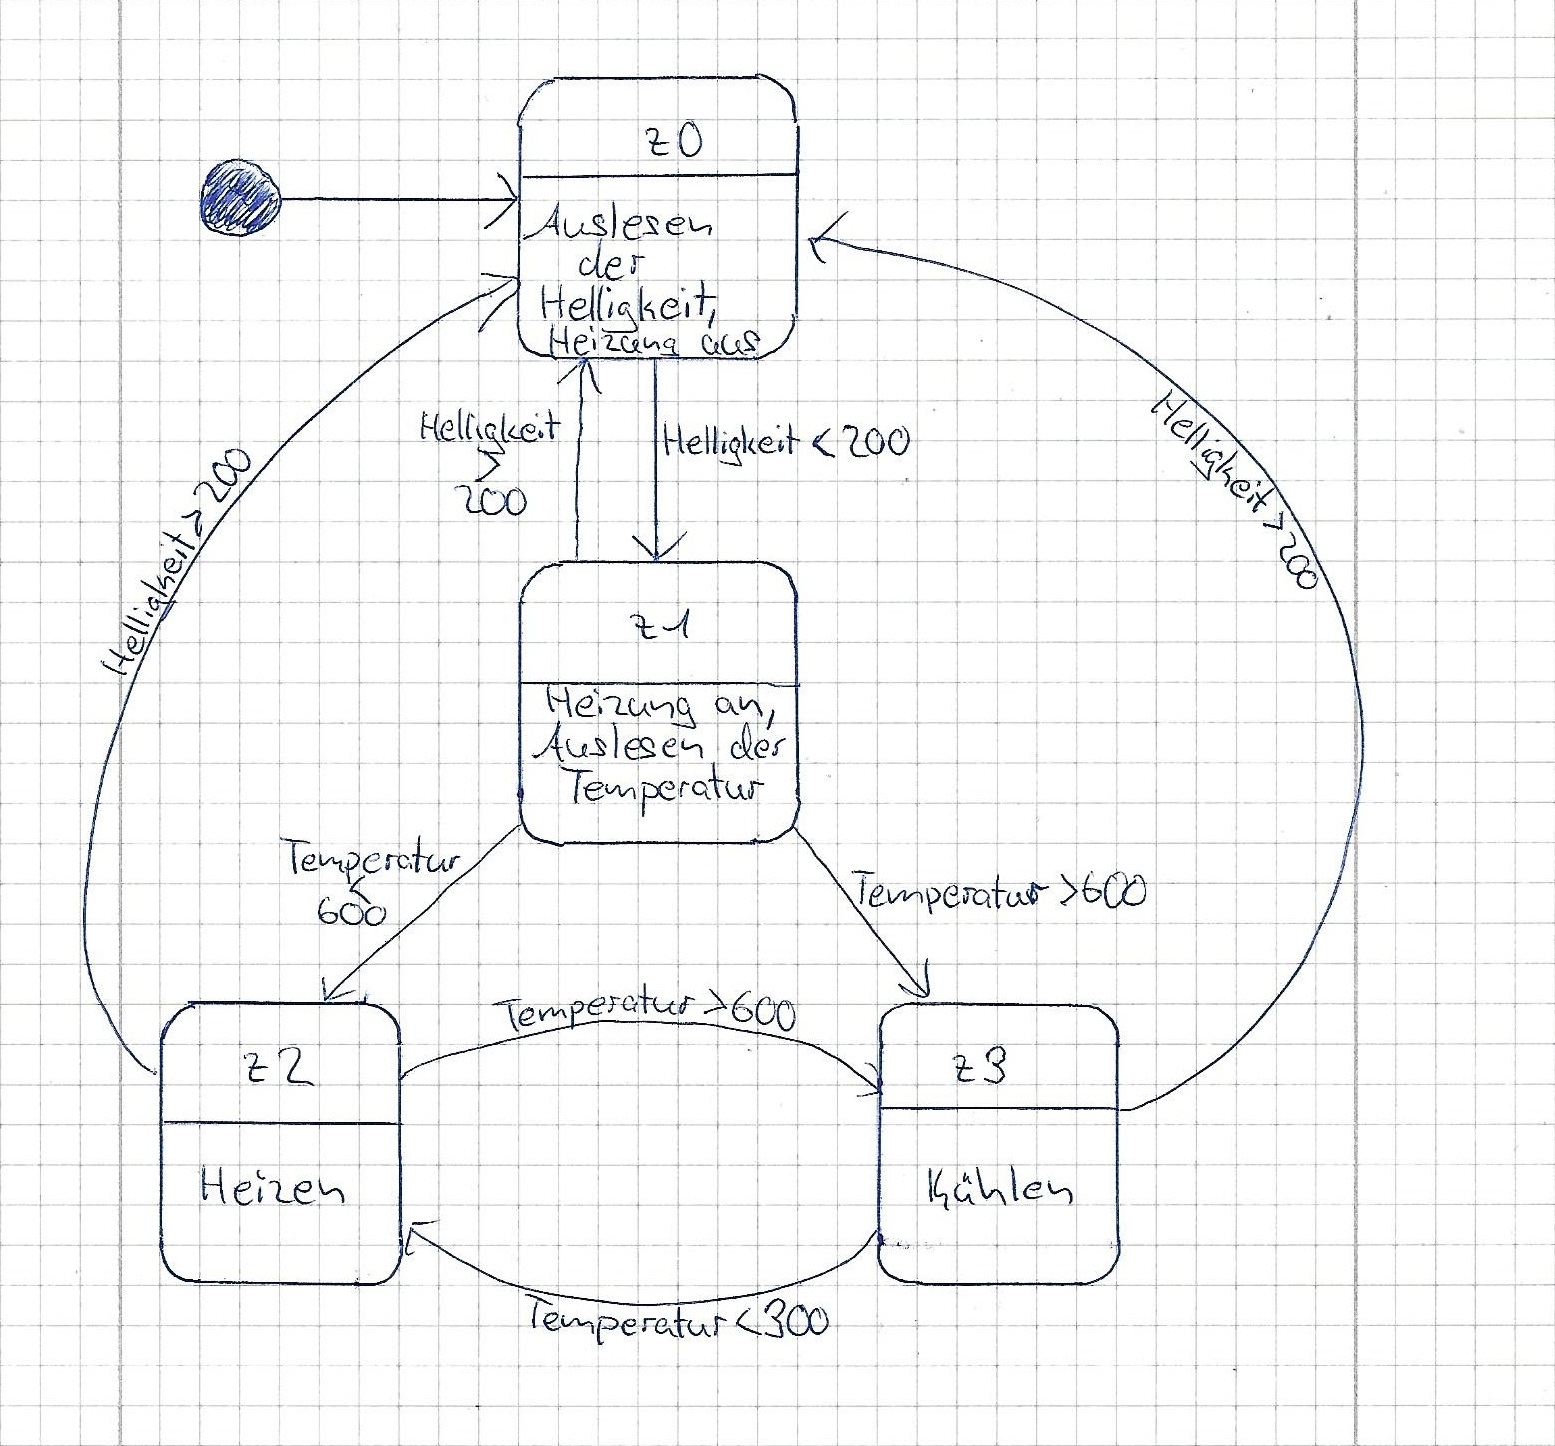 z0
Auslesen
der
Helligkeit,
Heizung aus
Helligkeit
>
200
Helligkeit < 200
Helligkeit > 200
Helligkeit > 200
z1
Heizung an,
Auslesen der
Temperatur
Temperatur
<
600
Temperatur >600
Temperatur >600
z2
Heizen
z3
Kühlen
Temperatur <300